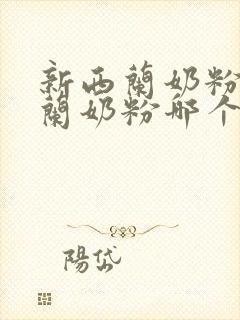 新西蘭奶粉
蘭奶粉哪个
陽岱